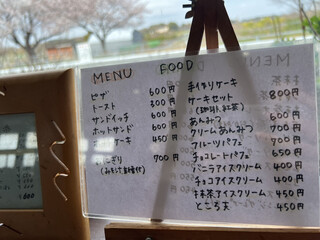 MENU FOOD
ピザ 600円
トースト 300円
サンドイッチ 600円
ホットサンド 600円
ケーキ 450円
700円
手作りケーキ
ケーキセット 800円
あんみつ 600円
クリームあんみつ 700円
フルーツパフェ 700円
チョコレートパフェ 650円
バニラアイスクリーム 400円
チョコアイスクリーム 400円
抹茶アイスクリーム 450円
ところ天 450円